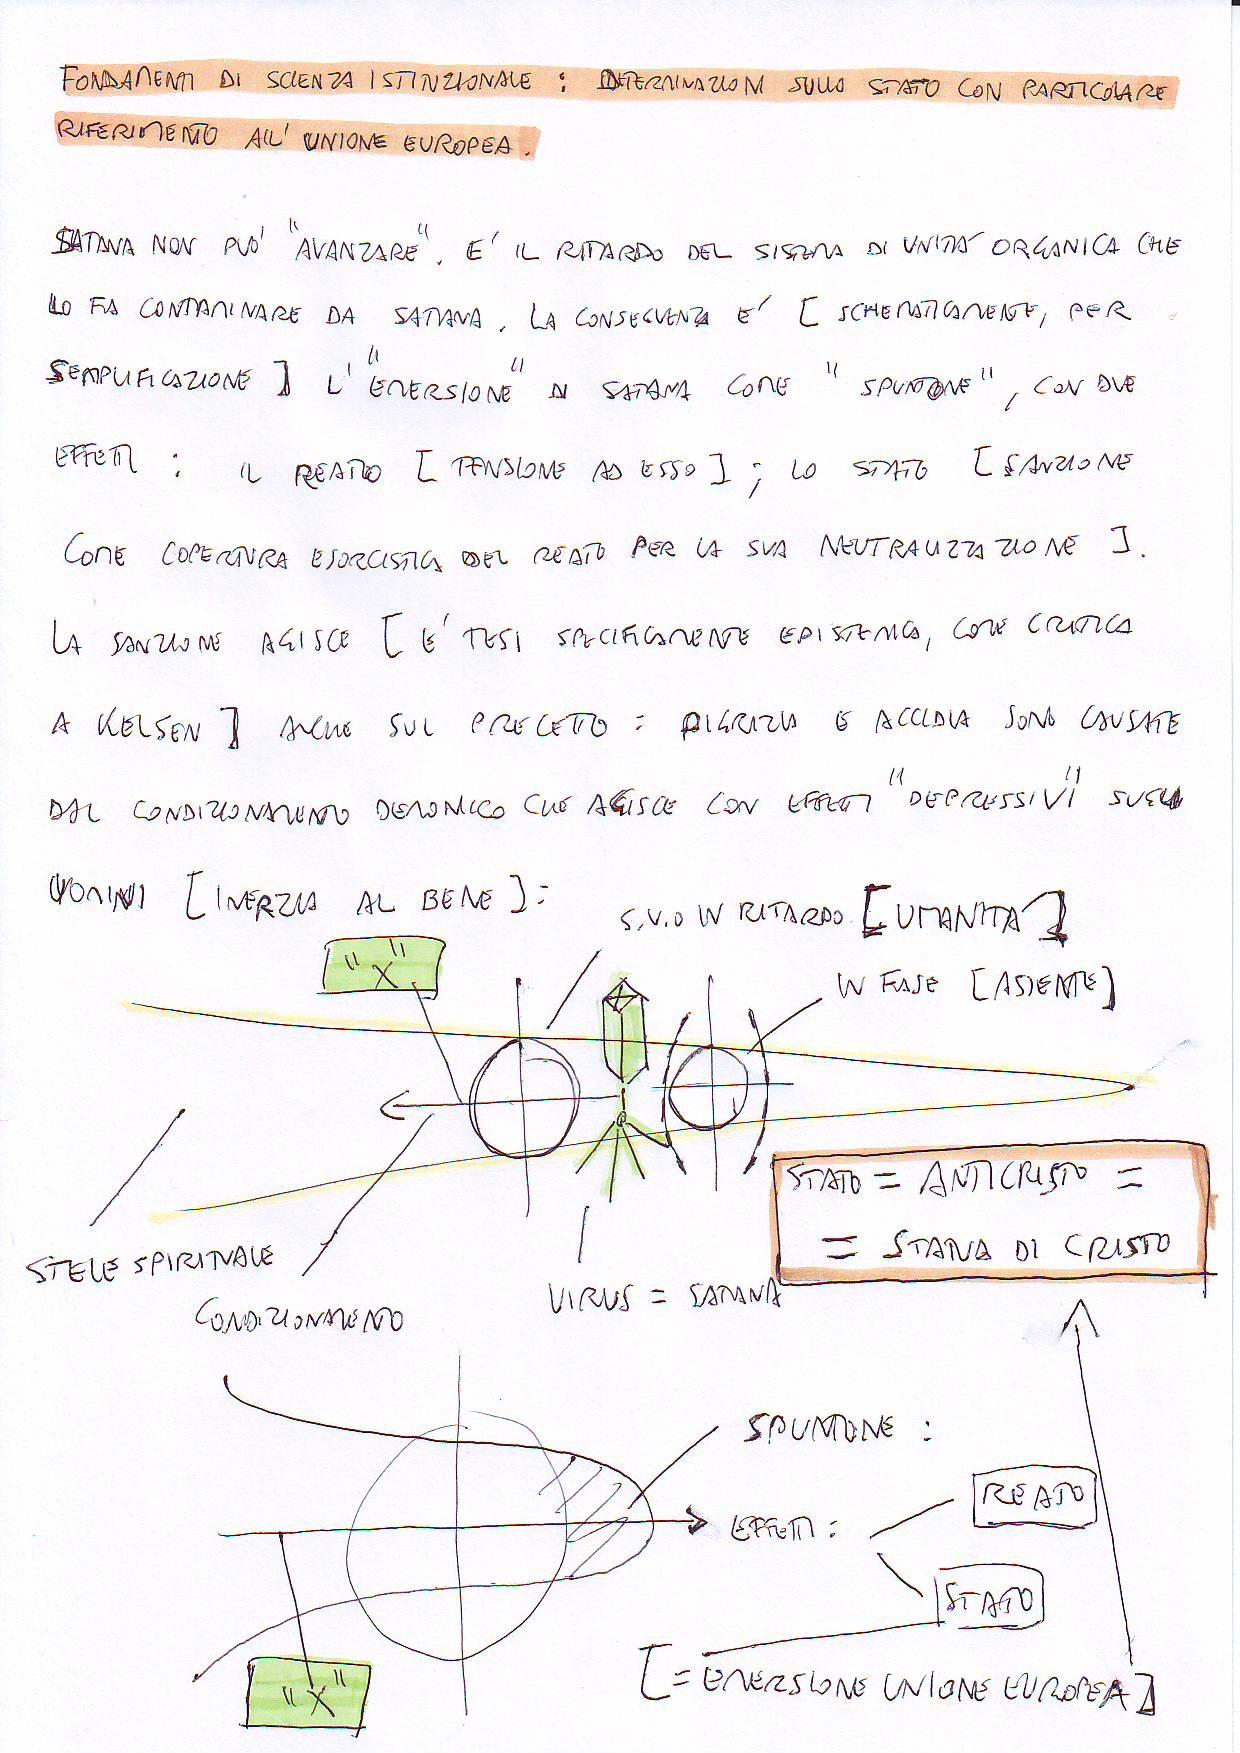 FONDAMENTI DI SCIENZA ISTINZIONALE : DETERMINAZIONI SULLO STATO CON PARTICOLARE
RIFERIMENTO ALL' UNIONE EUROPEA.
SATANA NON PUO' "AVANZARE". E' IL RITARDO DEL SISTEMA DI UNITA' ORGANICA CHE
LO FA CONTAMINARE DA SATANA. LA CONSEGUENZA E' [ SCHEMATICAMENTE, PER
SEMPLIFICAZIONE ] L' "EMERSIONE" DI SATANA COME "SPUNTONE", CON DUE
EFFETTI : IL REATO [ TENSIONE AD ESSO ] ; LO STATO [ SANZIONE
COME COPERTURA ESORCISTICA DEL REATO PER LA SUA NEUTRALIZZAZIONE ].
LA SANZIONE AGISCE [ E' TESI SPECIFICAMENTE EPISTEMICA, COME CRITICA
A KELSEN ] ANCHE SUL PRECETTO : PIGRIZIA E ACCIDIA SONO CAUSATE
DAL CONDIZIONAMENTO DEMONICO CHE AGISCE CON EFFETTI "DEPRESSIVI" SUGLI
UOMINI [ INERZIA AL BENE ] :
S.V.O IN RITARDO [ UMANITA' ]
"X"
IN FASE [ ASIENTE ]
STATO = ANTICRISTO =
= STANA DI CRISTO
STELE SPIRITUALE
VIRUS = SATANA
CONDIZIONAMENTO
SPUNTONE :
REATO
EFFETTI :
STATO
[ = EMERSIONE UNIONE EUROPEA ]
"X"